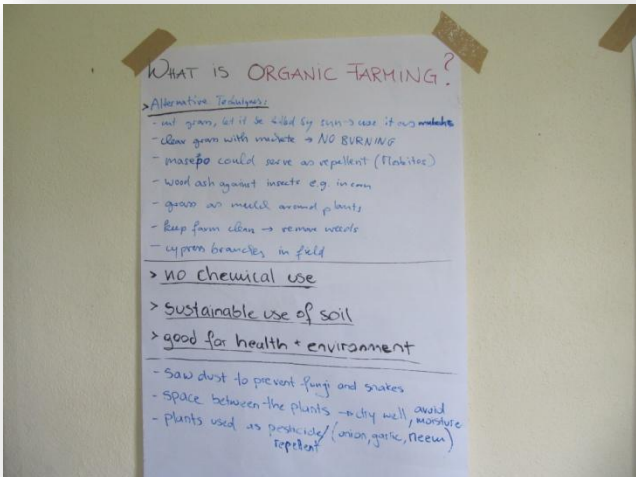 WHAT IS ORGANIC FARMING?
> Alternative Techniques:
- cut grass, let it be killed by sun → use it as
- clear grass with machete → NO BURNING
- masepo could serve as repellent
- wood ash against insects e.g. in
- grass as mulch around plants
- keep farm clean → remove weeds
- cypress branches in field
> no chemical use
> sustainable use of soil
> good for health + environment
- saw dust to prevent fungi and snakes
- space between the plants → dry well, avoid moisture
- plants used as pesticide/ (onion, garlic, neem)
repellent